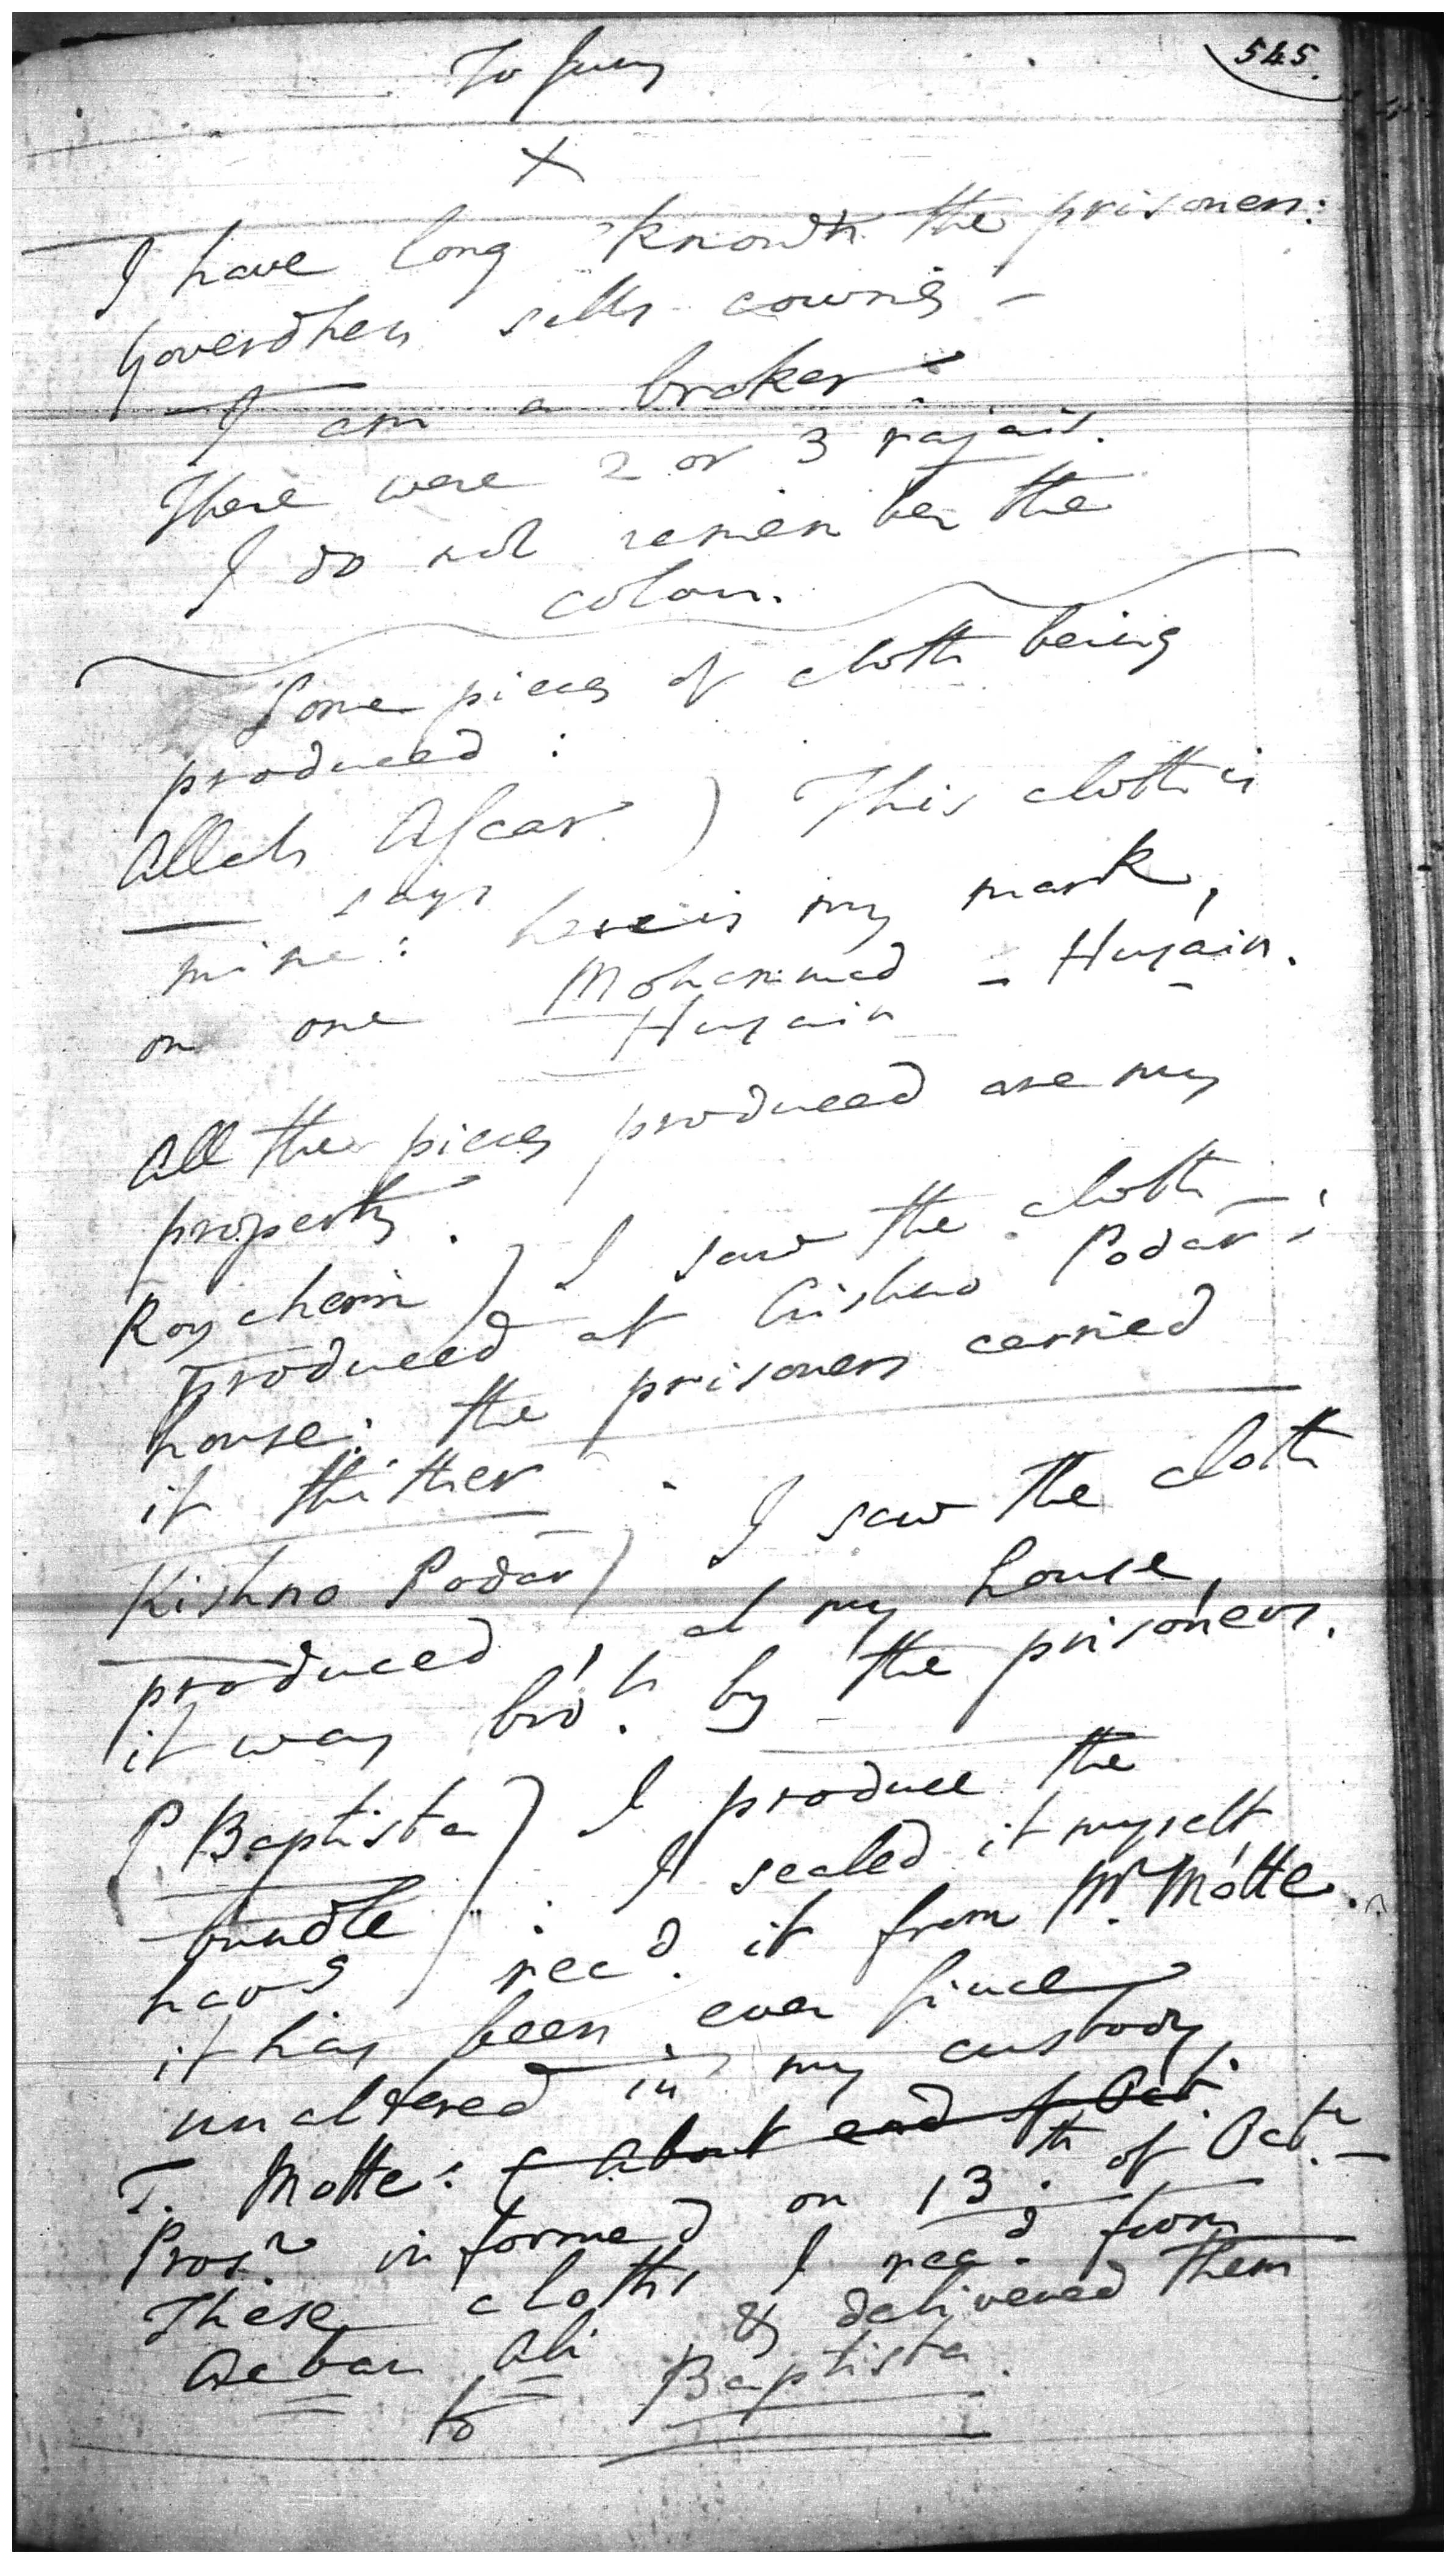 545.
To Jury
X
I have long known the prisoners:
Goverdhen sells cowries -
I am a broker
There were 2 or 3 rajais.
I do not remember the
colour.
Some pieces of cloth being
produced :
Allah Ascar ) This cloth is
says
mine: here is my mark,
on one Mohammed - Husain.
Husain
All the pieces produced are my
property.
Roy cherin ) I saw the cloth
produced at Crishno Podar's
house: the prisoners carried
it thither.
Kishno Podar ) I saw the cloth
produced at my house,
it was bro't. by the prisoners.
P. Baptista ) I produce the
bundle : I sealed it myself
havg rec'd. it from Mr. Motte.
it has been ever since
unaltered in my custody,
T. Motte: about end of Oct.
Pros.r informed on 13.th of Oct.r -
These cloths I rec.d from
Acbar Ali & delivered them
to Baptista.